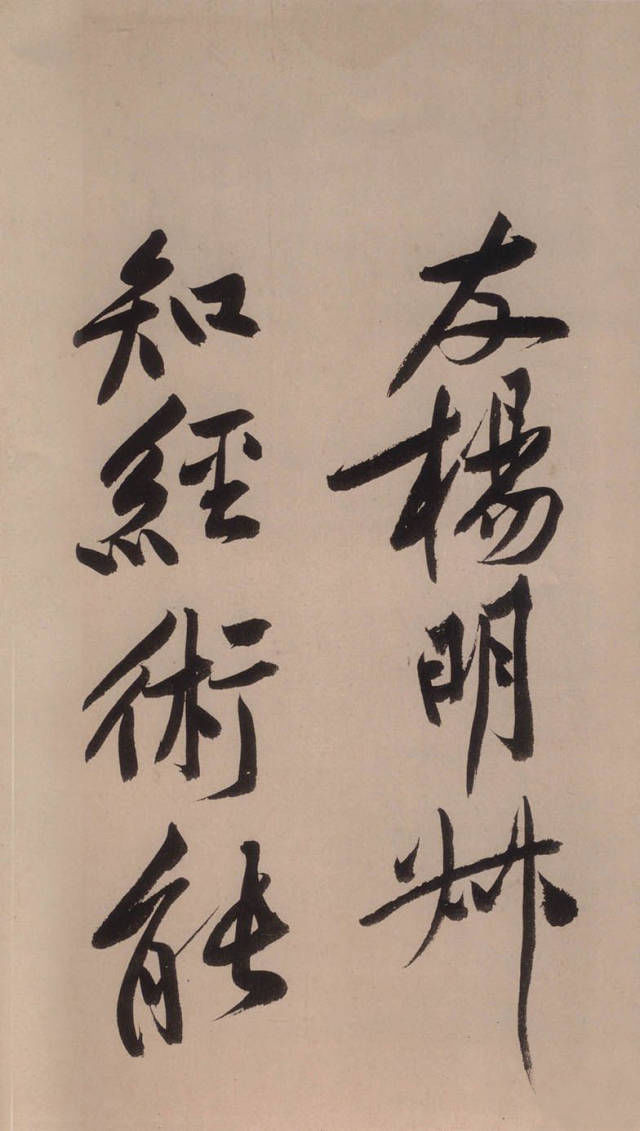 友楊明叔
知經術能